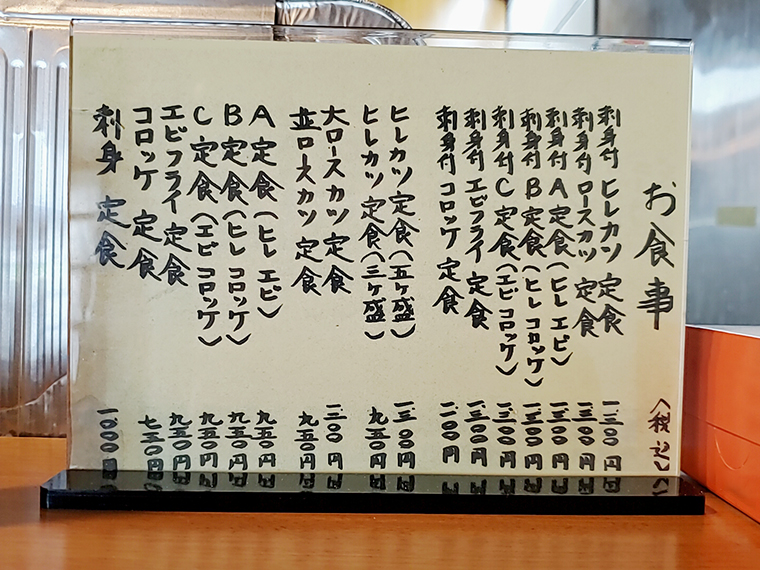 お食事 (税込)
刺身付 ヒレカツ 定食 一、三〇〇円
刺身付 ロースカツ 定食 一三〇〇円
刺身付 A 定食(ヒレ エビ) 一三〇〇円
刺身付 B 定食(ヒレ コロッケ) 一三〇〇円
刺身付 C 定食(エビ コロッケ) 一三〇〇円
刺身付 エビフライ 定食 一三〇〇円
刺身付 コロッケ 定食 一一〇〇円
ヒレカツ 定食(五ヶ盛) 一、三〇〇円
ヒレカツ 定食(三ヶ盛) 九五〇円
大ロースカツ 定食
並ロースカツ 定食 九五〇円
A 定食(ヒレ エビ) 九五〇円
B 定食(ヒレ コロッケ) 九五〇円
C 定食(エビ コロッケ) 九五〇円
エビフライ 定食 九五〇円
コロッケ 定食 七三〇円
刺身 定食 一、〇〇〇円